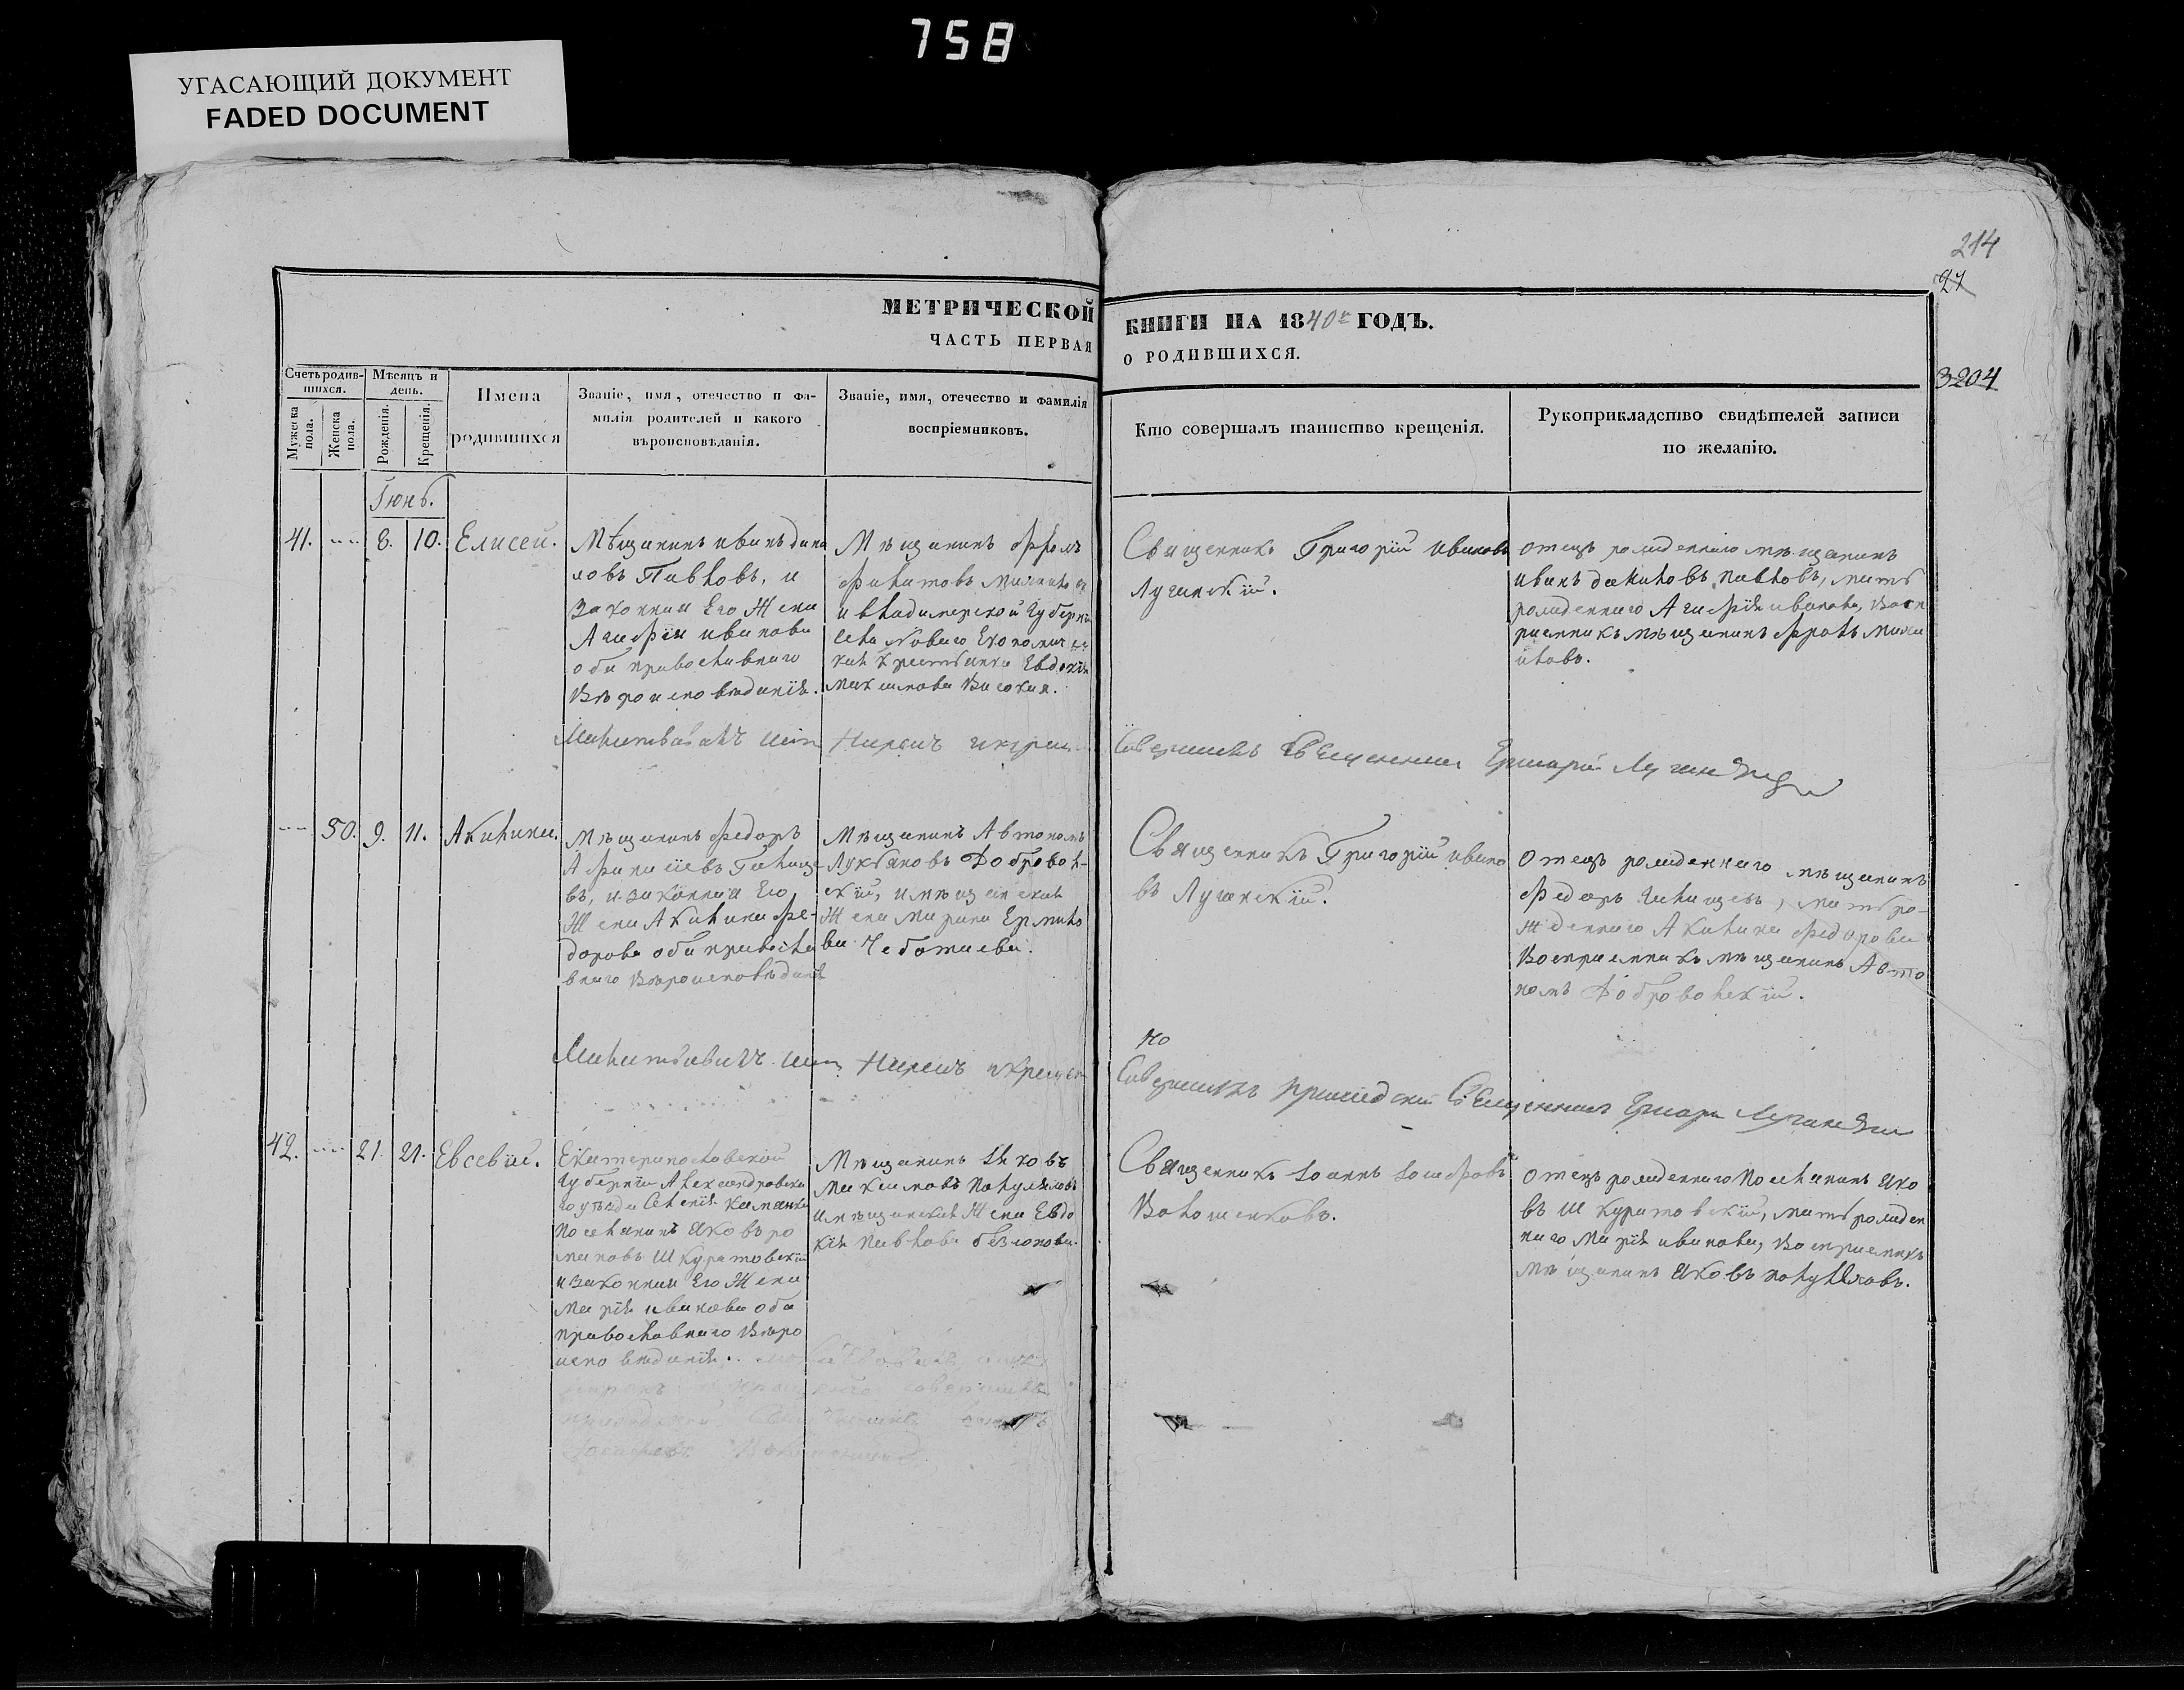 758
УГАСАЮЩИЙ ДОКУМЕНТ
FADED DOCUMENT
214
27
3204
МЕТРИЧЕСКОЙ
ЧАСТЬ ПЕРВАЯ
КНИГИ НА 1840й ГОДЪ.
О РОДИВШИХСЯ.
Счетъ родив-
шихся.
Мужеска
пола.
Женска
пола.
Мѣсяцъ и
день.
Рожденія.
Крещенія.
Имена
родившихся
Званіе, имя, отечество и фа-
милія родителей и какого
вѣроисповѣданія.
Званіе, имя, отечество и фамилія
воспріемниковъ.
Кто совершалъ таинство крещенія.
Рукоприкладство свидѣтелей записи
по желанію.
Іюнь.
41. 8. 10. Елисей.
Мѣщанинъ иванъ дани
ловъ Павловъ, и
законная Его Жена
Агафія иванова
оба православнаго
Вѣроисповѣданія.
Мѣщанинъ фролъ
и владимерской губерніи
села Новаго Економичес
кая крестьянка Евдокія
максимова Високая.
Священникъ Григорій ивановъ
Лучанскій.
отецъ рожденнаго мѣщанинъ
иванъ даниловъ павловъ, мать
рожденнаго Агафія иванова, Восп
риемникъ мѣщанинъ фролъ
Молитвовалъ имя нарекъ
Священникъ Григорій
50. 9. 11. Акилина.
Мѣщанинъ федоръ
въ, и законная Его
Жена Акилина фе-
дорова оба правосла
внаго Вѣроисповѣданія
Мѣщанинъ Автономъ
Лукьяновъ Доброволь-
скій, и мѣщанская
Жена Марина Ермило
ва Чеботаева.
Священникъ Григорій ивано
въ Лучанскій.
отецъ рожденнаго мѣщанинъ
федоръ мать ро-
жденнаго Акилина федорова
Восприемникъ мѣщанинъ Авто
номъ Добровольскій.
Молитвовалъ имя нарекъ и крещен
но
совершилъ приходскій Священникъ
42. 21. 21. Евсевій.
Екатеринославской
губерніи Александровска
го уѣзда селенія Каменки
поселянинъ Яковъ ро
мановъ Шкуратовскій
и законная Его Жена
марія иванова оба
православнаго Вѣро
исповѣданія.
Мѣщанинъ Яковъ
Максимовъ
и мѣщанская Жена Евдо
кія павлова
Священникъ Іоаннъ Іосифовъ
Волошенковъ.
отецъ рожденнаго Поселянинъ Яко
въ Шкуратовскій, мать рожден
наго Марія иванова, Восприемникъ
мѣщанинъ Яковъ